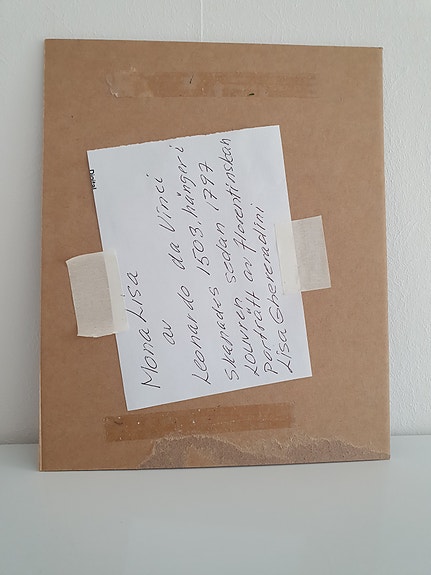 Mona Lisa
av
Leonardo da Vinci
skapades 1503, hänger i
Louvren sedan 1797
Porträtt av florentinskan
Lisa Ghereradini